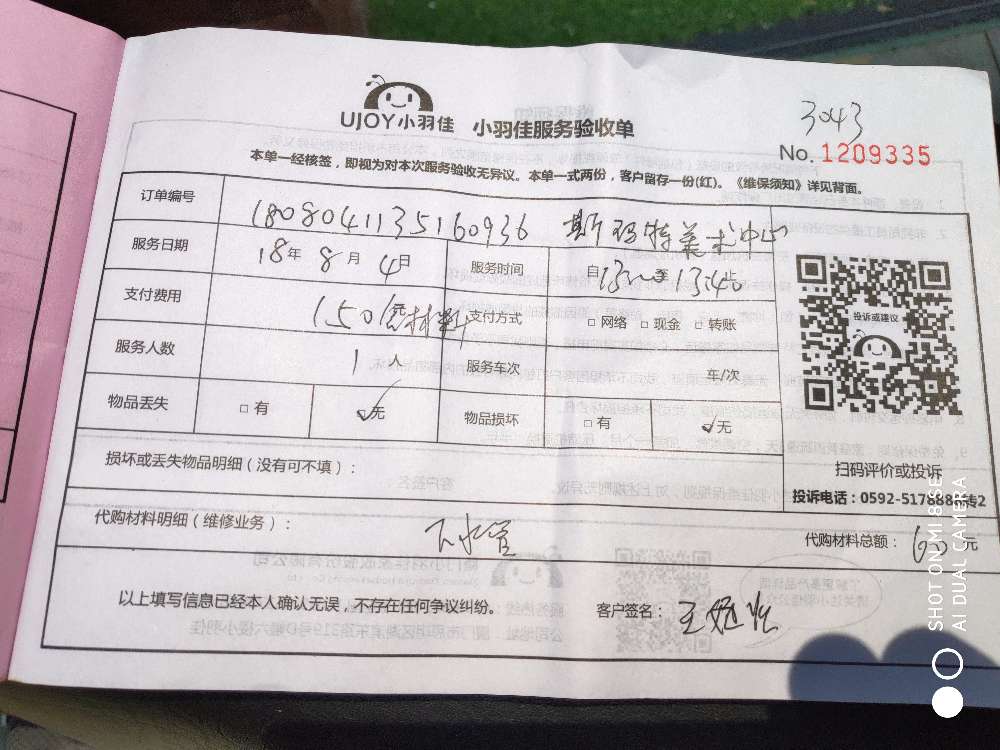 3043
UJOY小羽佳 小羽佳服务验收单
No. 1209335
本单一经核签，即视为对本次服务验收无异议。本单一式两份，客户留存一份(红)。《维保须知》详见背面。
订单编号 1808041135160936 斯玛特美术中心
服务日期 18年 8月 4日 服务时间 自13:00至13:40止
支付费用 150含材料 支付方式 □网络 □现金 □转账
服务人数 1人 服务车次 车/次
物品丢失 □有 ☑无 物品损坏 □有 ☑无
投诉或建议
扫码评价或投诉
投诉电话：0592-5178888转2
损坏或丢失物品明细（没有可不填）：
代购材料明细（维修业务）： 下水管 代购材料总额： 60元
以上填写信息已经本人确认无误，不存在任何争议纠纷。 客户签名：
SHOT ON MI 8 SE
AI DUAL CAMERA